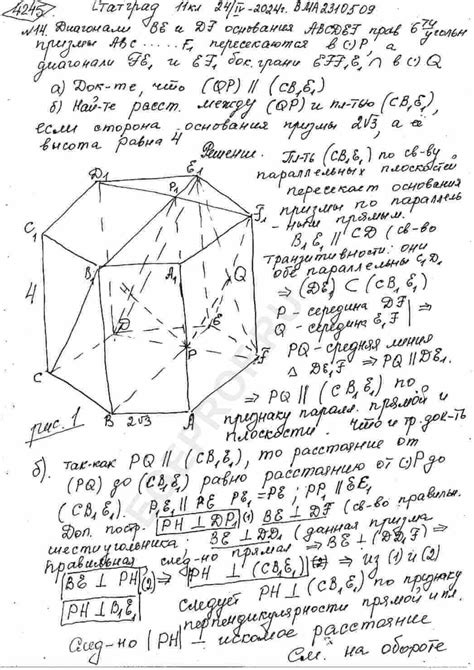 4245) Статград 11кл 24/IV-2024г. ВМА2310509
№14. Диагонали BE и DF основания ABCDEF прав 6ти угольн
призмы ABC ..... F₁ пересекаются в (·)P, а
диагонали FE₁ и EF₁ бок. грани EFF₁E₁ ∩ в (·) Q
а) Док-те, что (QP) ∥ (CB₁E₁)
б) Най-те расст. между (QP) и пл-тью (CB₁E₁),
если сторона основания призмы 2√3, а её
высота равна 4
Решение.
Пл-ть (CB₁E₁) по св-ву
параллельных плоскостей
пересекает основания
призмы по параллель
ным прямым.
B₁E₁ ∥ CD (св-во
транзитивности: они
обе параллельны C₁D₁
⇒ (DE₁) ⊂ (CB₁E₁)
P - середина DF
Q - середина E₁F ⇒
PQ - средняя линия
△ DE₁F ⇒ PQ ∥ DE₁.
⇒ PQ ∥ (CB₁E₁) по
признаку паралл. прямой и
плоскости. Что и тр. док-ть
D₁ E₁ P₁ F₁ C₁ B₁ A₁ Q 4 D E P F C B 2√3 A
рис. 1
б). так-как PQ ∥ (CB₁E₁), то расстояние от
(PQ) до (CB₁E₁) равно расстоянию от (·)P до
(CB₁E₁). P₁E₁ ∥ PE P₁E₁ = PE ; PP₁ ∥ EE₁
Доп. постр. PH ⊥ DP₁ (1) BE ⊥ DF (св-во правильн.
шестиугольника. BE ⊥ DD₁ (данная призма
правильная след-но прямая ⇒ BE ⊥ (DD₁F) ⇒
BE ⊥ PH (2) ⇒ PH ⊥ (CB₁E₁) ⇒ из (1) и (2)
PH ⊥ B₁E₁ следует PH ⊥ (CB₁E₁) по признаку
перпендикулярности прямой и пл.
След-но |PH| - искомое расстояние
См. на обороте